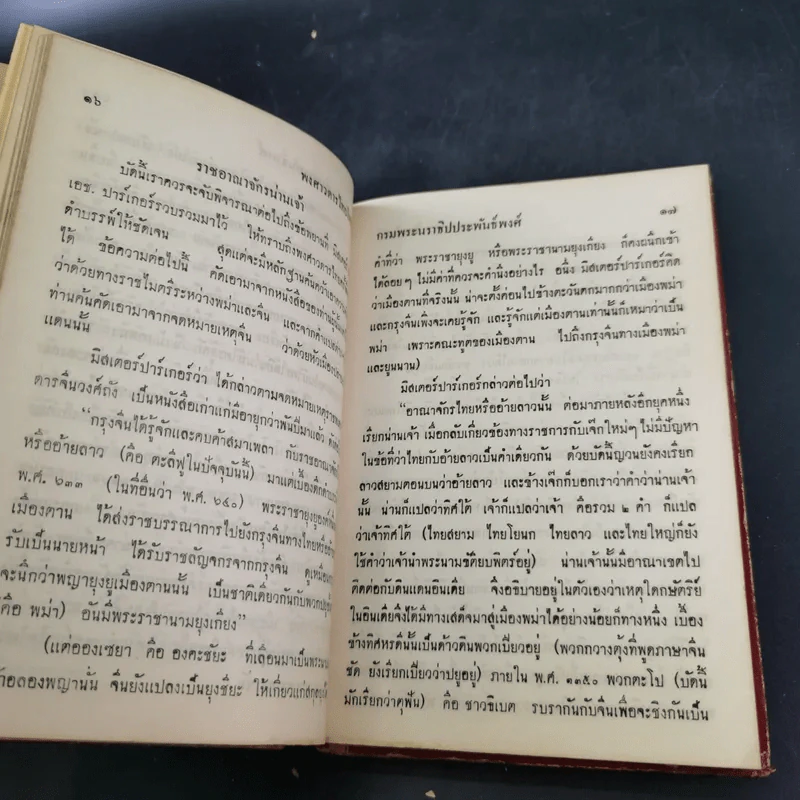 ๑๖
พงศาวดารไทย
ราชอาณาจักรน่านเจ้า
บัดนี้เราควรจะจับพิจารณาต่อไปถึงข้อพยานที่
เอช. ปาร์เกอร์รวบรวมมาไว้ ให้ทราบถึงพงศาวดารไทย
ดำบรรพ์ให้ชัดเจน สุดแต่จะมีหลักฐานค้นคว้าเอา
ได้ ข้อความต่อไปนี้ คัดเอามาจากหนังสือของท่าน
ว่าด้วยทางราชไมตรีระหว่างพม่าและจีน และจาก
ท่านค้นคัดเอามาจากจดหมายเหตุจีน ว่าด้วยหัวเมือง
แดนนั้น
มิสเตอร์ปาร์เกอร์ว่า ได้กล่าวตามจดหมายเหตุ
ดารจีนวงศ์ถัง เป็นหนังสือเก่าแก่มีอายุกว่าพันปีมาแล้ว
“กรุงจีนได้รู้จักและคบค้าสมาเพลา กับราชอาณา
หรืออ้ายลาว (คือ ตะลีฟูในปัจจุบันนี้) มาแต่เบื้องดึกดำ
พ.ศ. ๖๓๓ (ในที่อื่นว่า พ.ศ. ๖๔๐) พระราชายุงยู
เมืองตาน ได้ส่งราชบรรณาการไปยังกรุงจีนทางไทยหรือ
รับเป็นนายหน้า ได้รับราชลัญจกรจากกรุงจีน ดูเหมือน
จะนึกว่าพญายุงยูเมืองตานนั้น เป็นชาติเดียวกันกับพวก
คือ พม่า) อันมีพระราชานามยุงเกียง”
(แต่อองเซยา คือ องคะชัยะ ที่เลื่อนมาเป็นพระนาม
จ้าอลองพญานั้น จีนยังแปลงเป็นยุงชียะ ให้เกี่ยวแก่
กรมพระนราธิปประพันธ์พงศ์
๑๗
คำที่ว่า พระราชายุงยู หรือพระราชานามยุงเกียง ก็คงผนึกเข้า
ได้ลอยๆ ไม่มีค่าที่ควรจะคำนึงอย่างไร อนึ่ง มิสเตอร์ปาร์เกอร์คิด
ว่าเมืองตานที่จริงนั้น น่าจะตั้งค่อนไปข้างตะวันตกมากกว่าเมืองพม่า
และกรุงจีนเพิ่งจะเคยรู้จัก และรู้จักแต่เมืองตานเท่านั้นก็เหมาว่าเป็น
พม่า เพราะคณะทูตของเมืองตาน ไปถึงกรุงจีนทางเมืองพม่า
และยูนนาน
มิสเตอร์ปาร์เกอร์กล่าวต่อไปว่า
“อาณาจักรไทยหรืออ้ายลาวนั้น ต่อมาภายหลังอีกยุคหนึ่ง
เรียกน่านเจ้า เมื่อกลับเกี่ยวข้องทางราชการกับเจ๊กใหม่ๆ ไม่มีปัญหา
ในข้อที่ว่าไทยกับอ้ายลาวเป็นคำเดียวกัน ด้วยบัดนี้ญวนยังคงเรียก
ลาวสยามตอนบนว่าอ้ายลาว และข้างเจ๊กก็บอกเราว่าคำว่าน่านเจ้า
นั้น น่านก็แปลว่าทิศใต้ เจ้าก็แปลว่าเจ้า คือรวม ๒ คำ ก็แปล
ว่าเจ้าทิศใต้ (ไทยสยาม ไทยโยนก ไทยลาว และไทยใหญ่ก็ยัง
ใช้คำว่าเจ้านำพระนามขัติยบพิตร์อยู่) น่านเจ้านั้นมีอาณาเขตไป
ติดต่อกับดินแดนอินเดีย จึงอธิบายอยู่ในตัวเองว่าเหตุใดกษัตริย์
ในอินเดียจึงได้มีทางเสด็จมาสู่เมืองพม่าได้อย่างน้อยก็ทางหนึ่ง เบื้อง
ข้างทิศหรดีนั้นเป็นด้าวดินพวกเปียวอยู่ (พวกกวางตุ้งที่พูดภาษาจีน
ชัด ยังเรียกเปียวว่าปยูอยู่) ภายใน พ.ศ. ๑๓๕๐ พวกตะโป (บัดนี้
มักเรียกว่าตูฟัน) คือ ชาวธิเบต รบรากันกับจีนเพื่อจะชิงกันเป็น